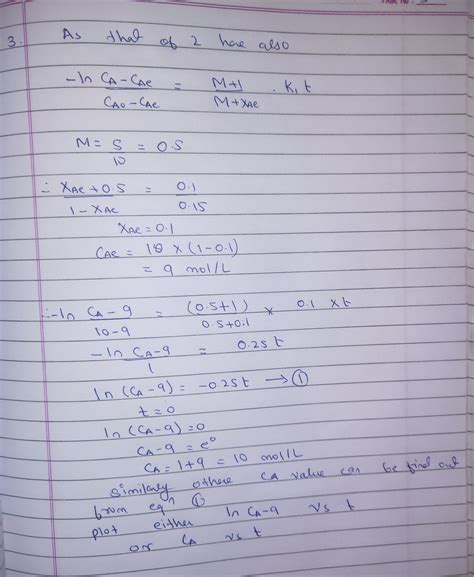 PAGE NO:
3. As that of 2 here also
-ln CA-CAe = M+1 . K1 t
CA0-CAe M+XAe
M = 5 = 0.5
10
∴ XAe+0.5 = 0.1
1-XAe 0.15
XAe = 0.1
CAe = 10 × (1-0.1)
= 9 mol/L
∴ -ln CA-9 = (0.5+1) × 0.1 × t
10-9 0.5+0.1
-ln CA-9 = 0.25 t
1
ln (CA-9) = -0.25t → ①
t=0
ln (CA-9) = 0
CA-9 = e⁰
CA = 1+9 = 10 mol/L
Similarly othere CA value can be find out
from eqn ①
plot either ln CA-9 vs t
or CA vs t